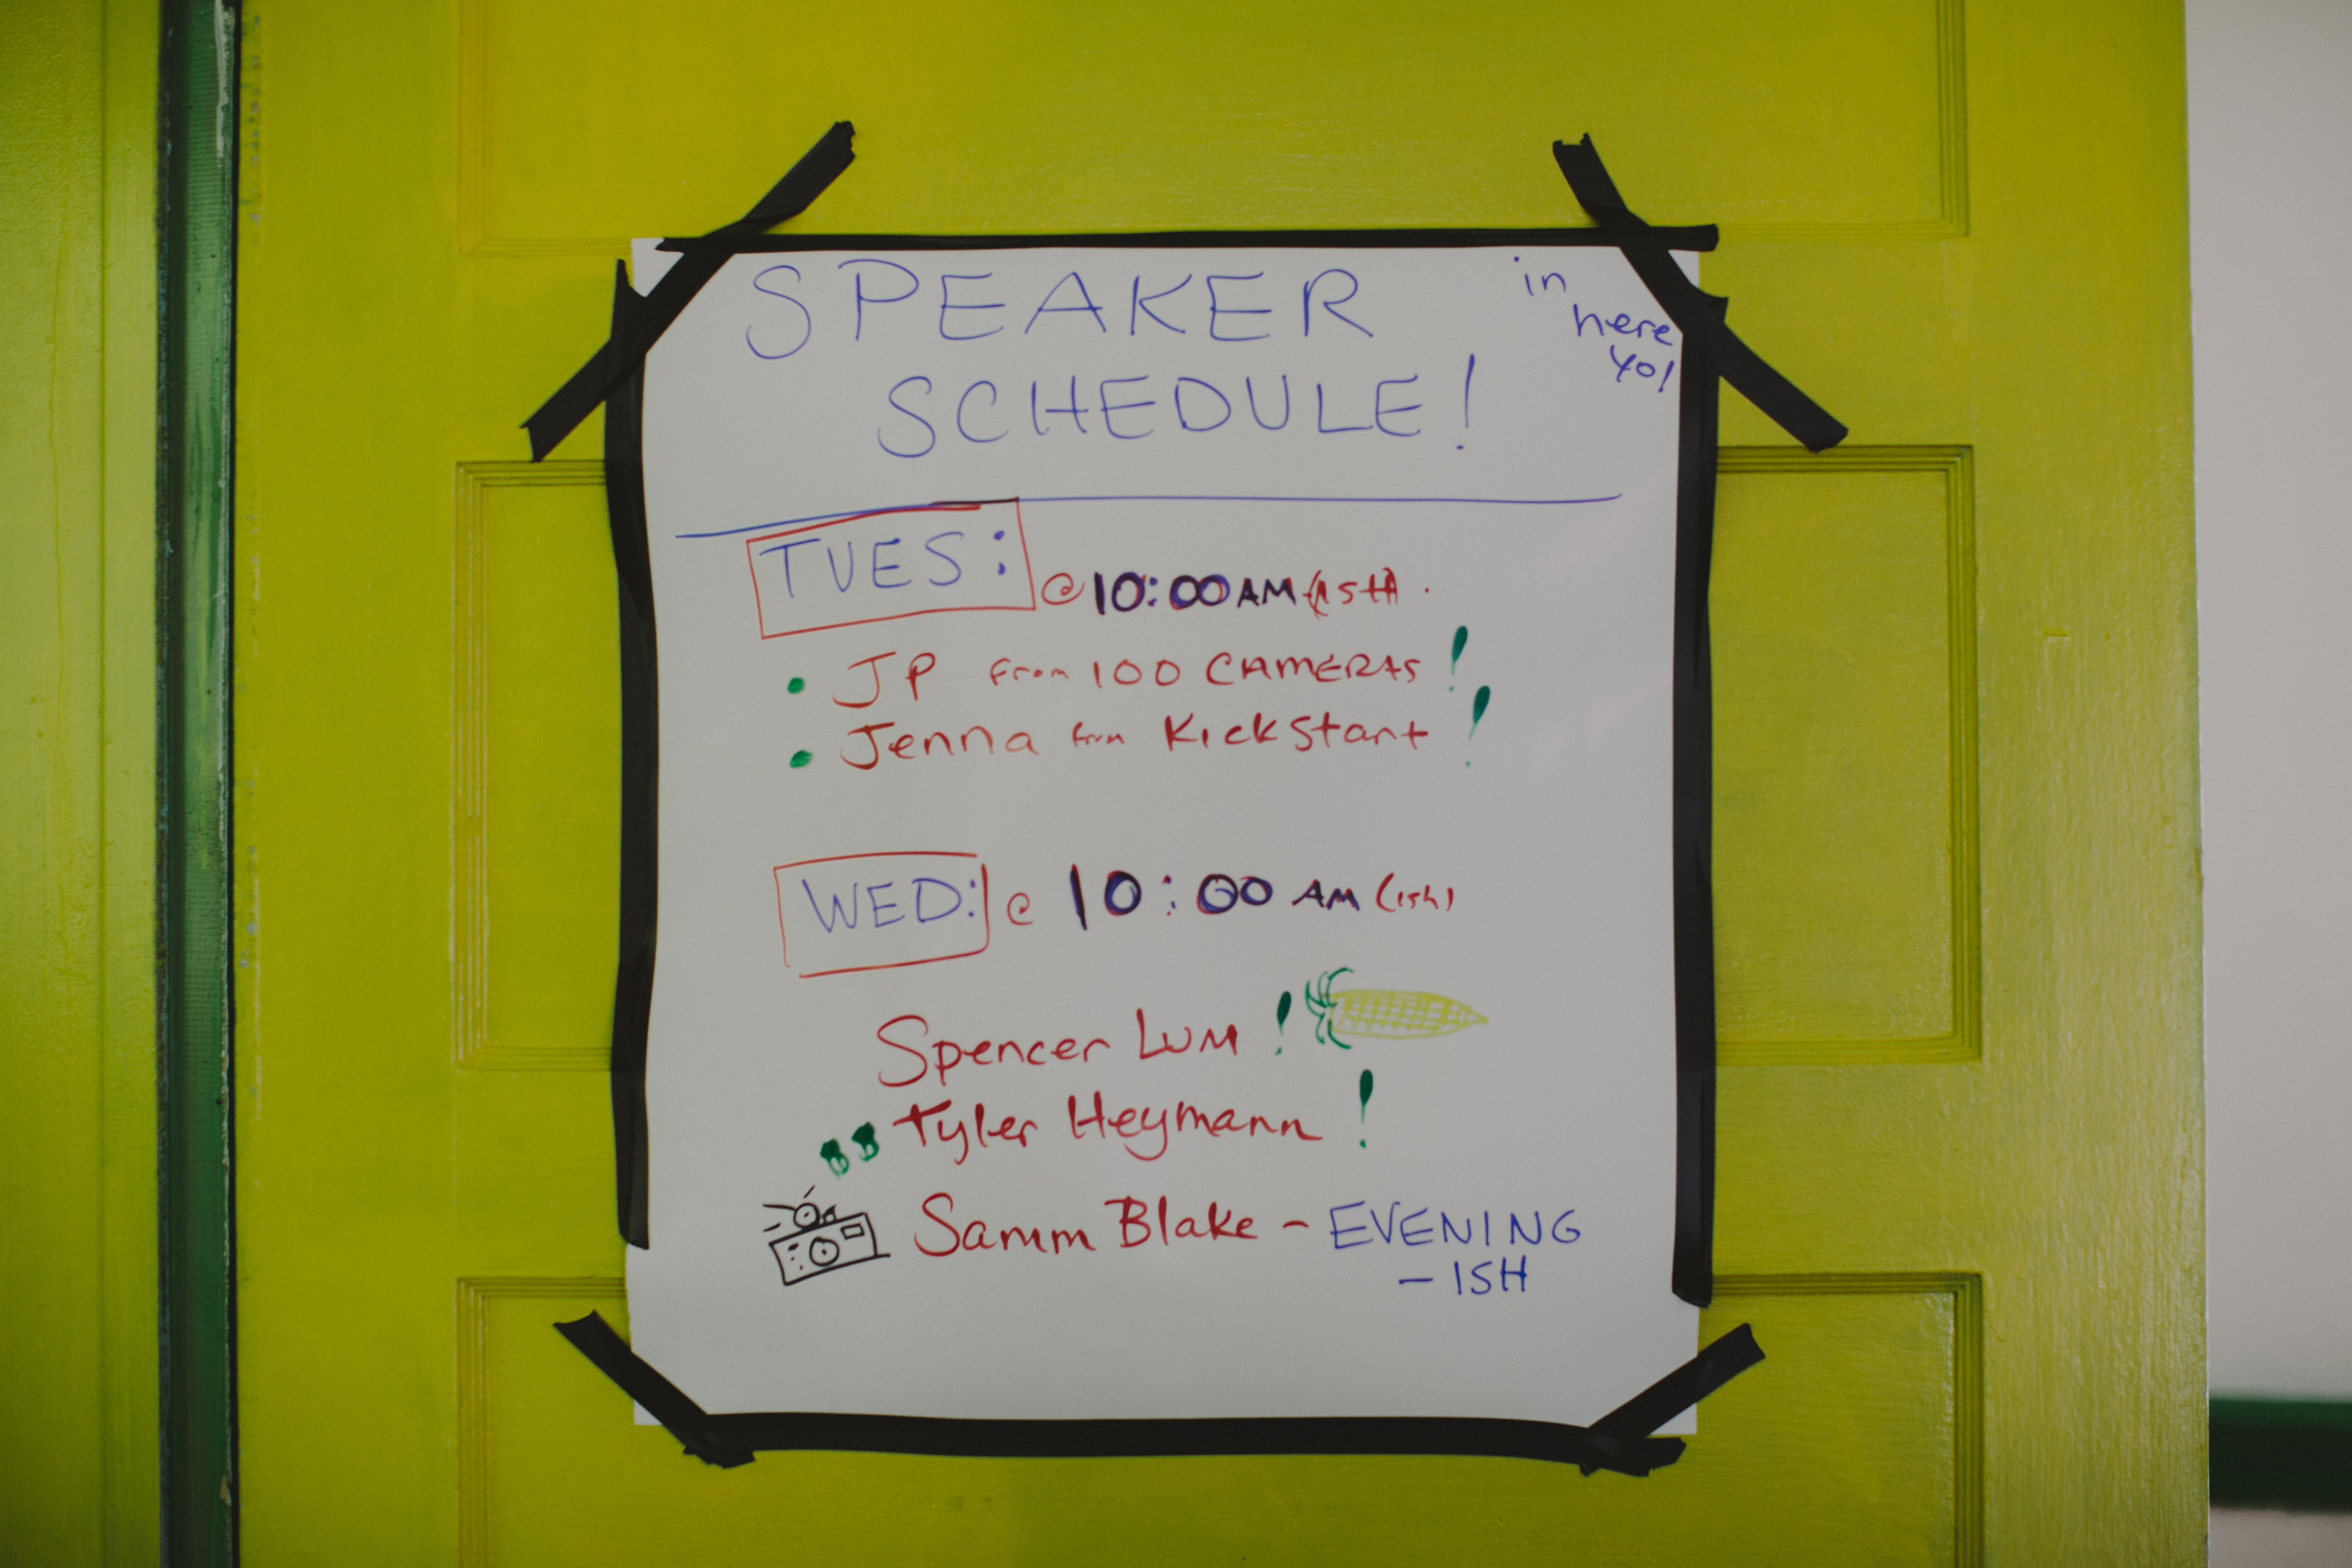 SPEAKER
SCHEDULE!
in
here
yo!
TUES: @ 10:00 AM (ISH).
• JP from 100 CAMERAS!
• Jenna from Kickstart!
WED: @ 10:00 AM (ish)
Spencer Lum!
Tyler Heymann!
Samm Blake - EVENING
- ISH